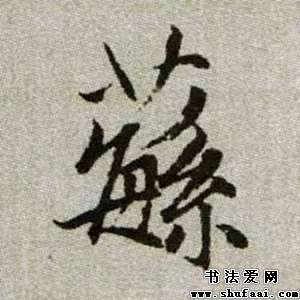 蘩
书法爱网
www.shufaai.com